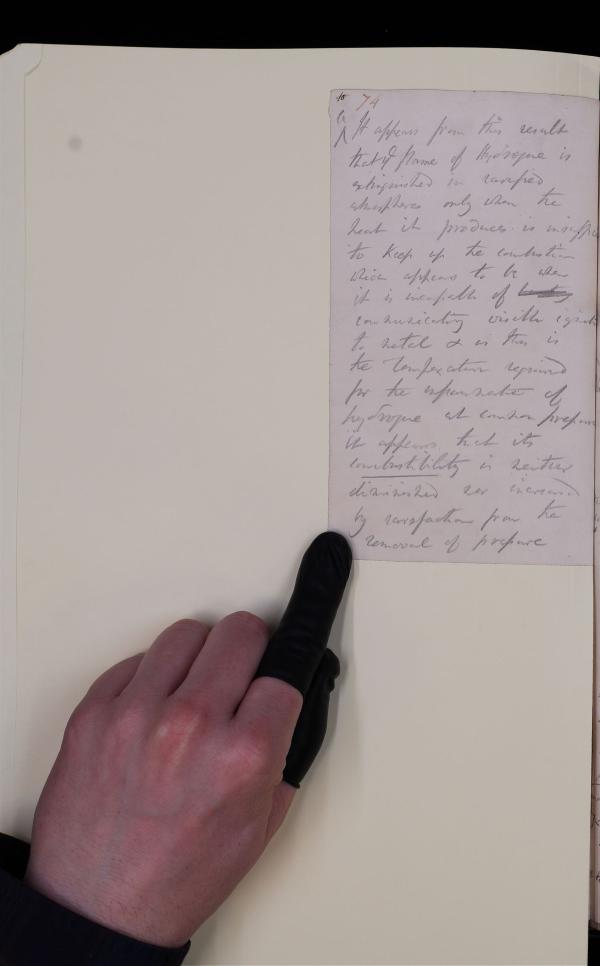 74
It appears from this result
that ye flame of Hydrogene is
extinguished in rarefied
atmospheres only when the
heat it produces is insuffi
to keep up the combustion
which appears to be when
it is incapable of
communicating visible ignit
to metal & as this is
the temperature required
for the inflammation of
hydrogene at common pressure
it appears that its
combustibility is neither
diminished nor increased
by rarefaction from the
removal of pressure